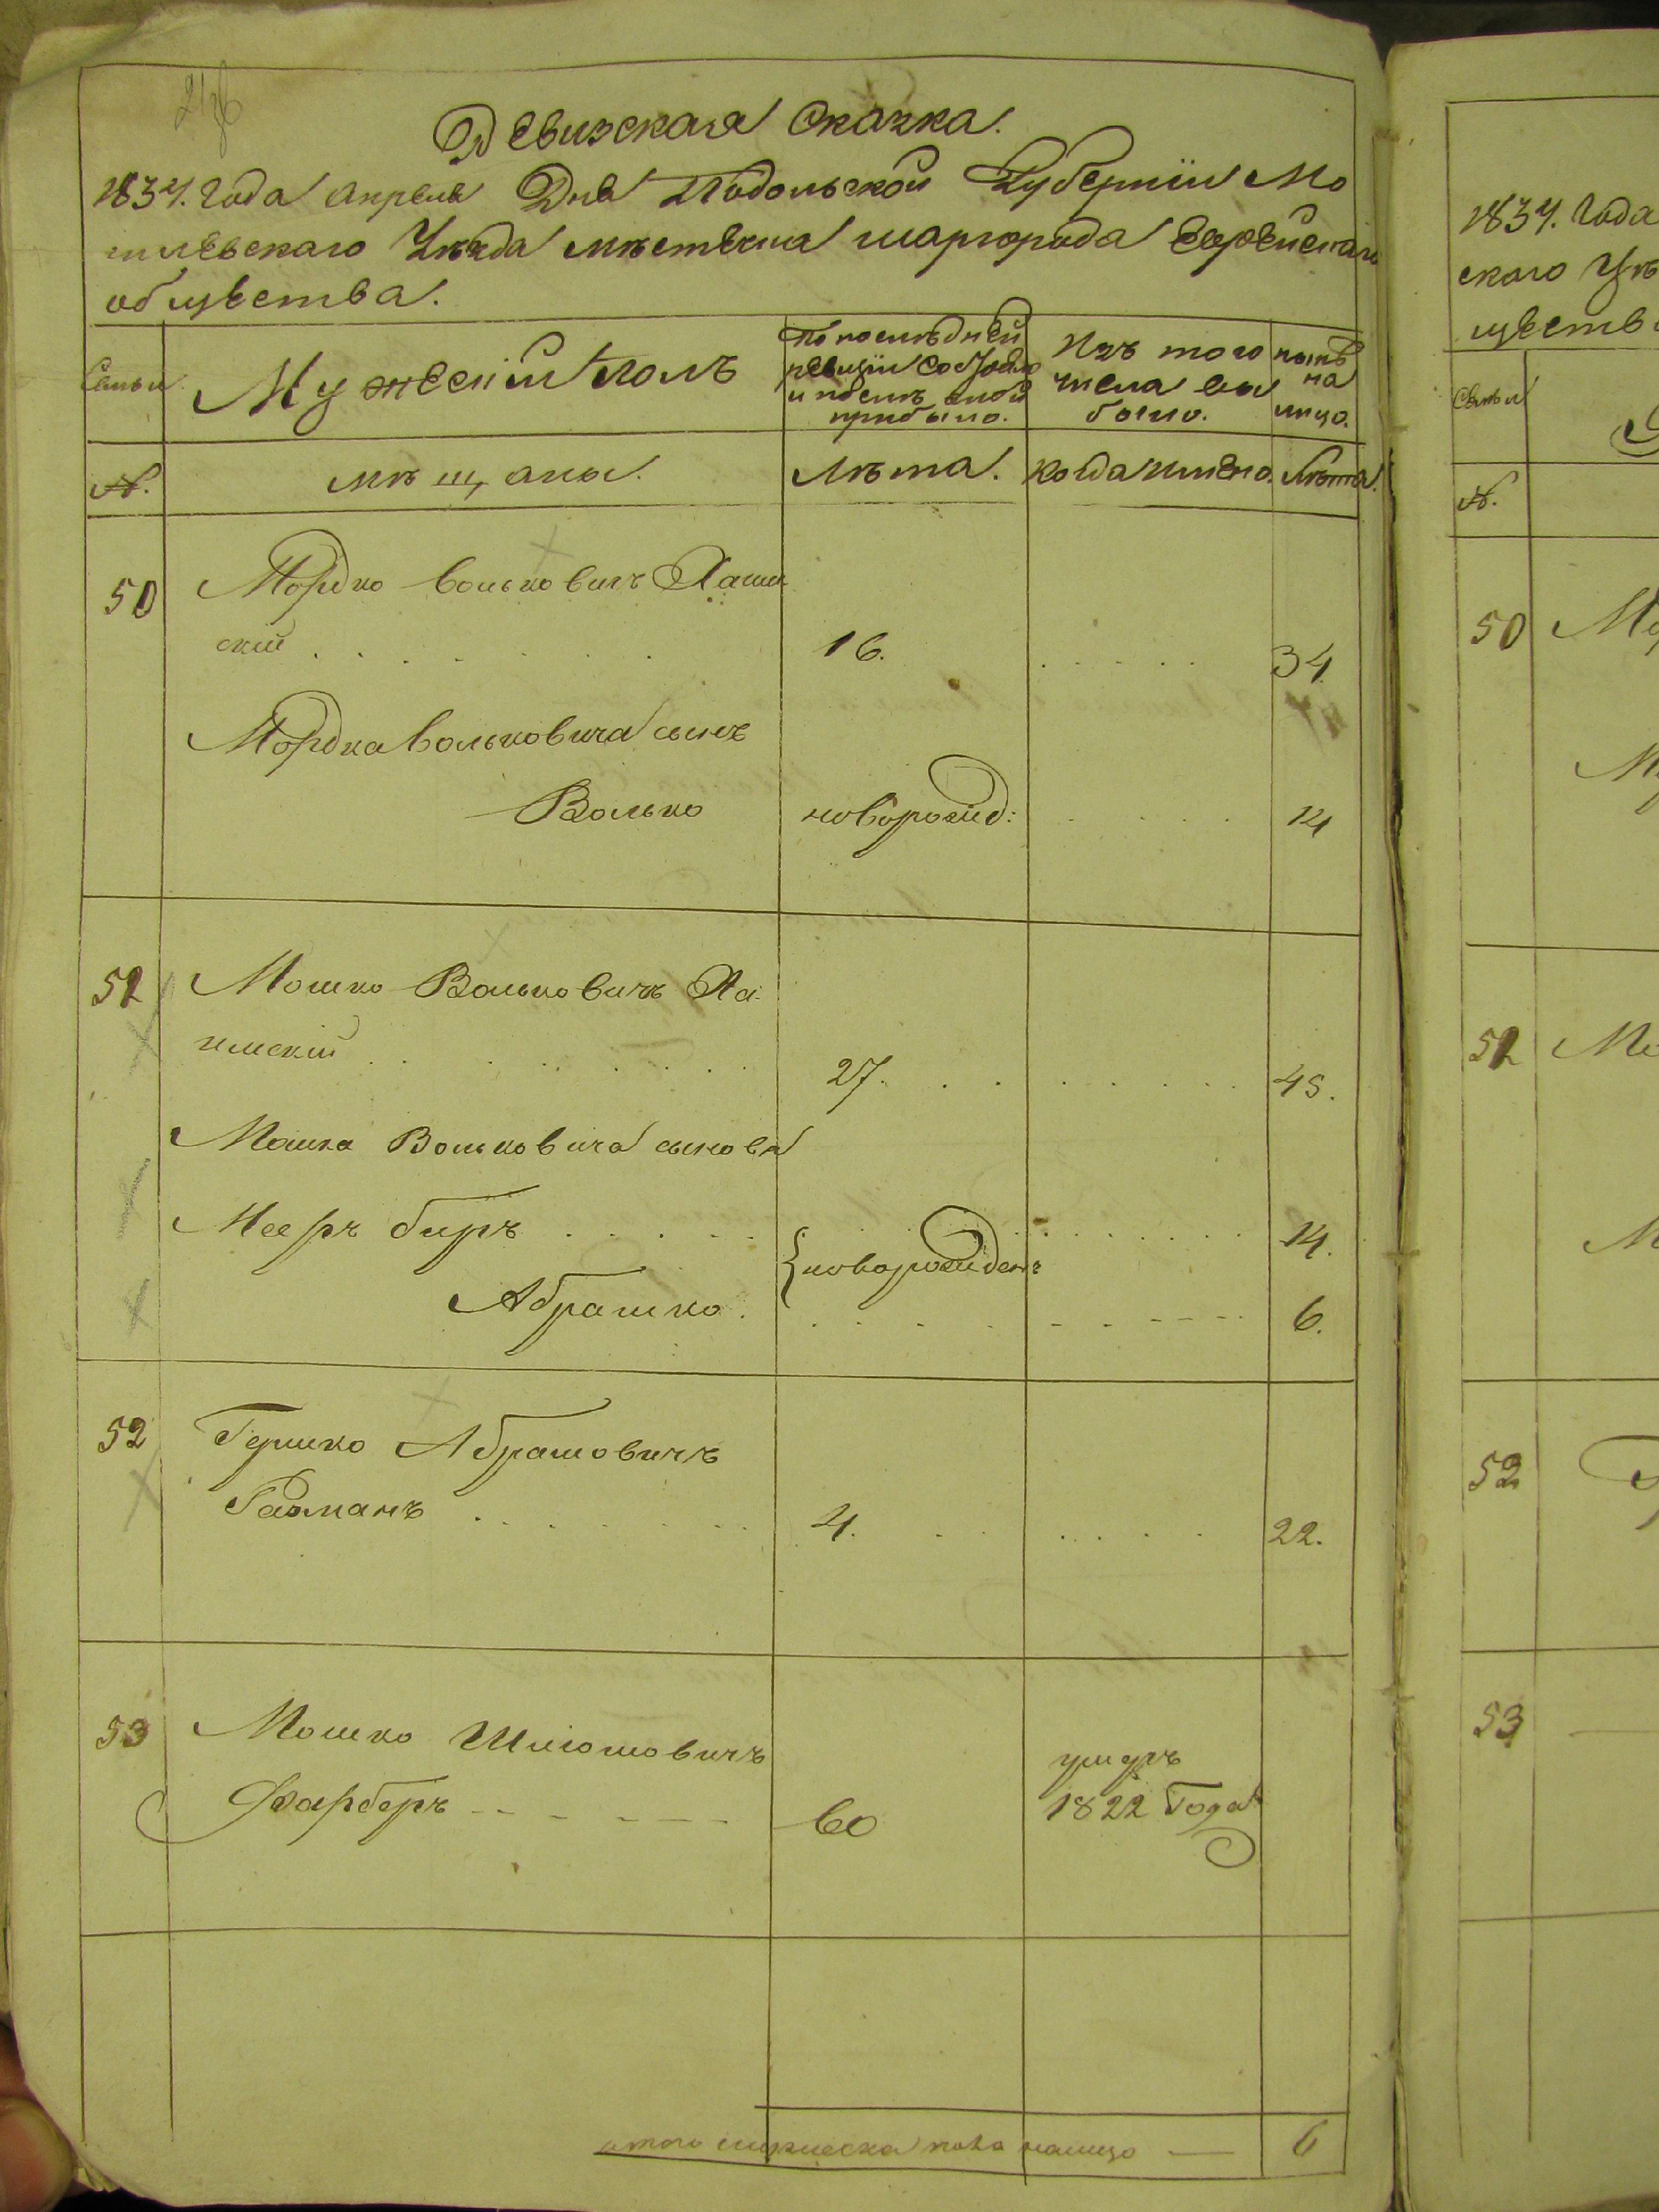 Ревизская Сказка.
1834. Года Апреля Дня Подольской Губернiи Мо
гилевскаго Уѣзда мѣстечка шаргорода Еврейскаго
общества.
Семьи Мужескiй Полъ По послѣдней ревизiи состояло и послѣ оной прибыло. Изъ того числа выбыло. нынѣ на лицо.
№. мѣщаны. Лѣта. Когда имено. Лѣта.
50 Мордко Вольковичъ Хачи
скiй 16. 34
Мордка Вольковича сынъ
Волько новорожд: 14
51 Мошко Вольковичъ Ха
чимскiй 27. 45.
Мошка Вольковича сыновя
Мееръ биръ 14.
новорожден
Абрашко. 6.
52 Гершко Абрамовичъ
4. 22.
53 Мошко Шлiомовичъ умеръ
Фарберъ 60 1822 Года
итого мужеска пола налицо — 6